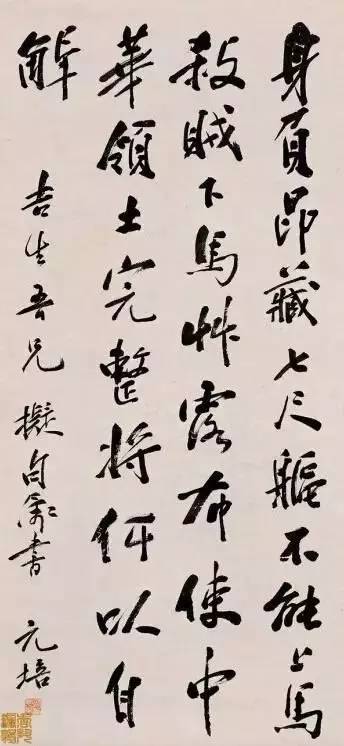 身負昂藏七尺軀不能上馬
殺賊下馬艸露布使中
華領土完整將何以自
解
吉生吾兄擬句書 元培